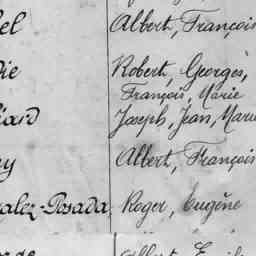 el Albert, François
ie Robert, Georges,
François, Marie
iard Joseph, Jean, Marie
y Albert, François
alez-Posada Roger, Eugène